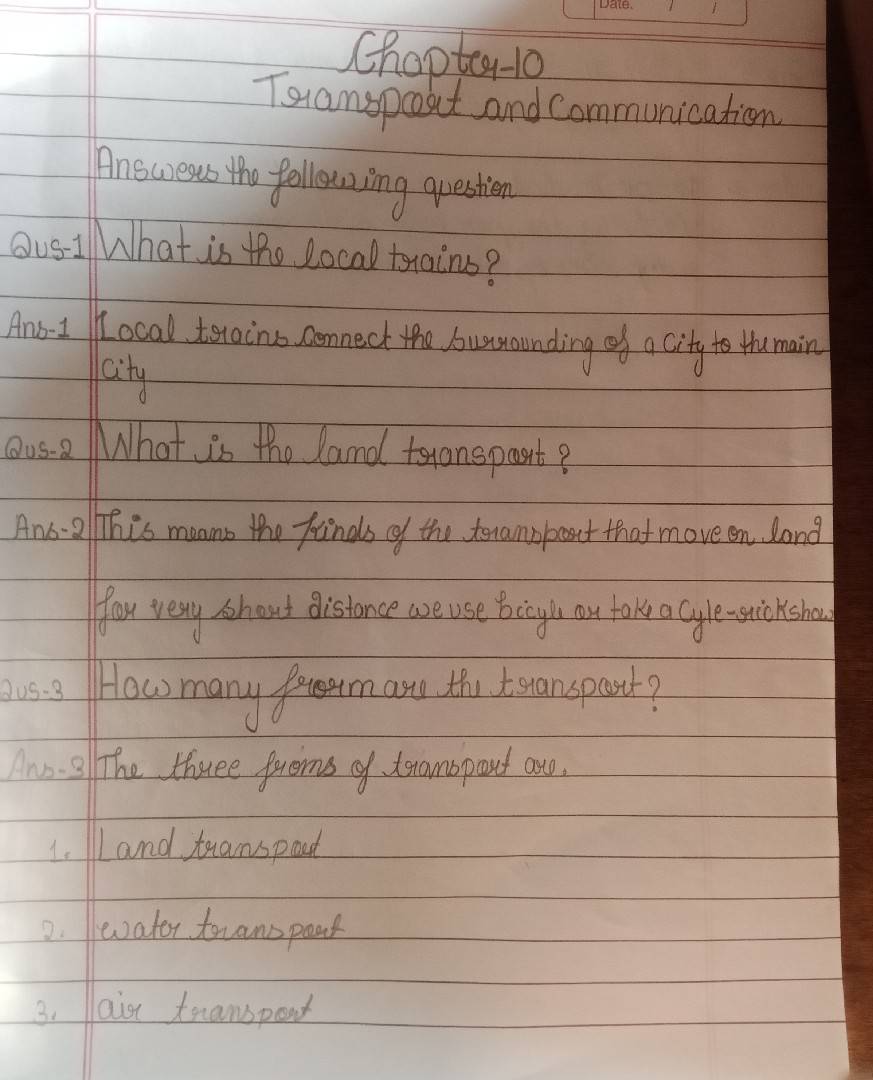 Date. / /
Chapter-10
Transport and Communication
Answers the following question
Qus-1 What is the local trains?
Ans-1 Local trains connect the surrounding of a City to the main
City
Qus-2 What is the land transport?
Ans-2 This means the kinds of the transport that move on land
for very short distance we use bicyle or take a Cyle-rickshaw
Qus-3 How many frorm are the transport?
Ans-3 The three froms of transport are.
1. Land transport
2. water transport
3. air transport